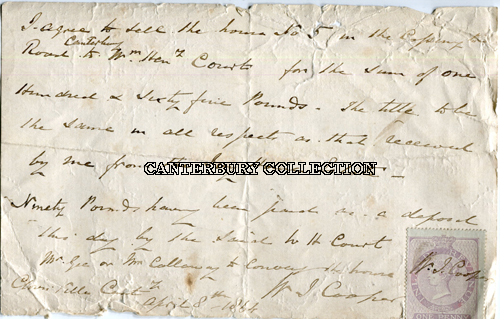 I agree to sell the house No 5 in the
Canterbury
Road to Wm Heny Court for the sum of one
Hundred & Sixty five Pounds - The title to be
the same in all respects as that received
by me from
CANTERBURY COLLECTION
Ninety Pounds having been paid as a deposit
this day by the said W H Court
Mr Gee or Mr Callaway to convey the house
April 8th 1864
Wm J Cooper
W. J. Cooper
ONE PENNY